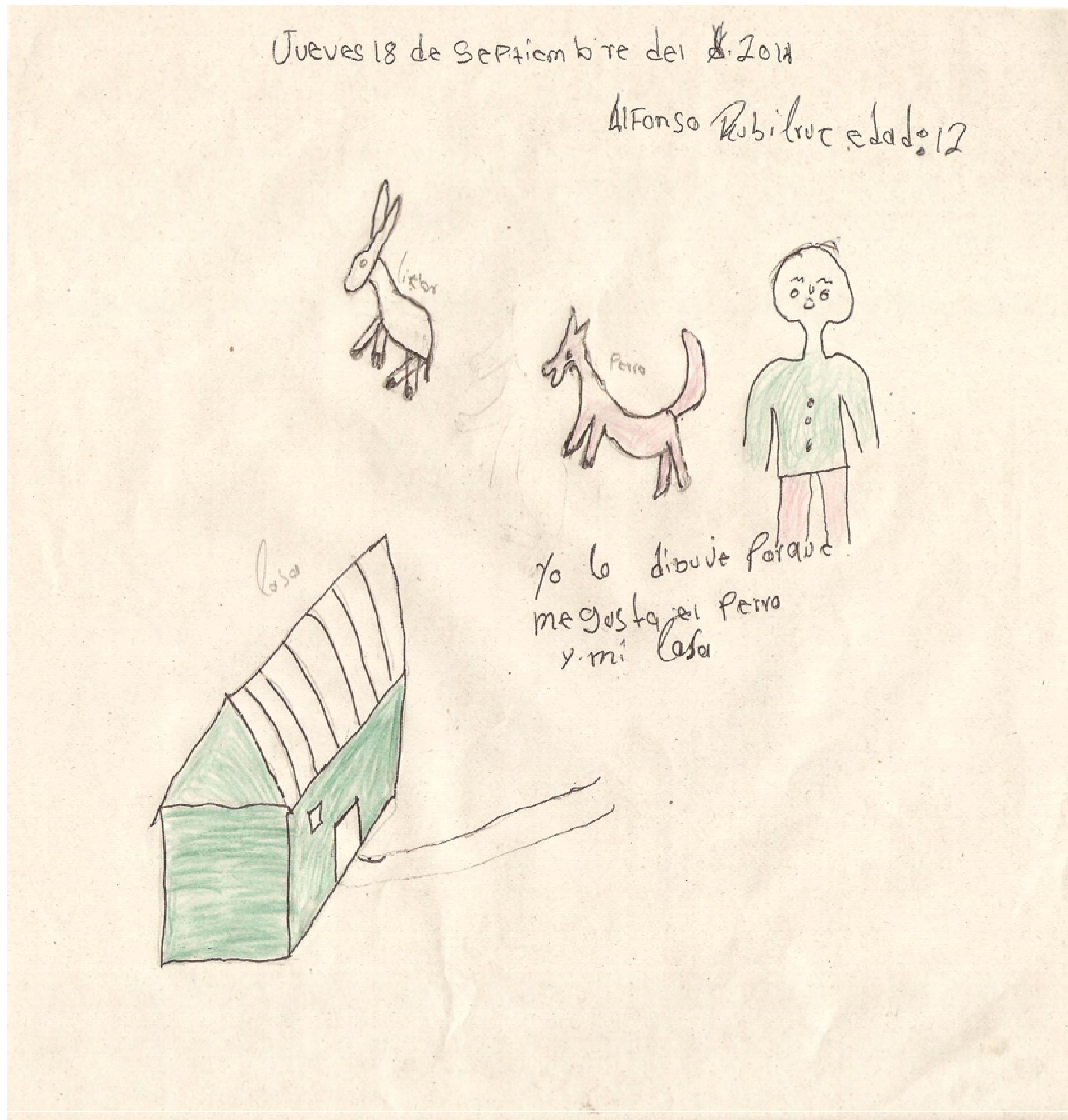 Jueves 18 de Septiembre del 2014
Alfonso edad: 12
Perro
Casa
Yo lo dibuje Porque
me gusta el Perro
y mi Casa